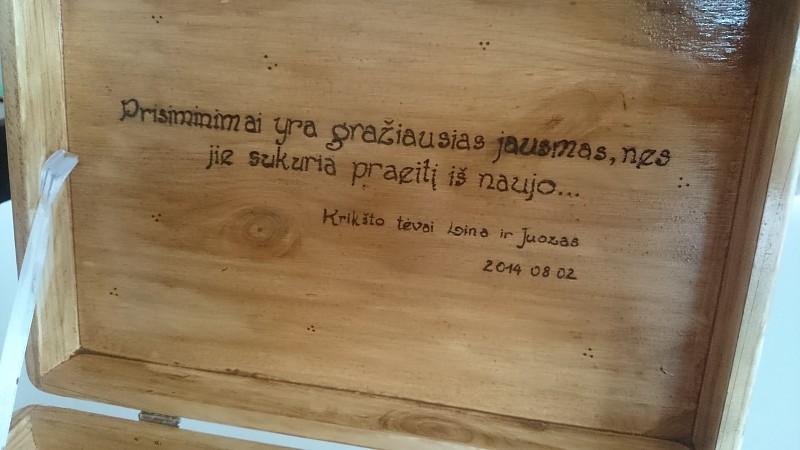 Prisiminimai yra gražiausias jausmas, nes
jie sukuria praeitį iš naujo...
Krikšto tėvai Lina ir Juozas
2014 08 02